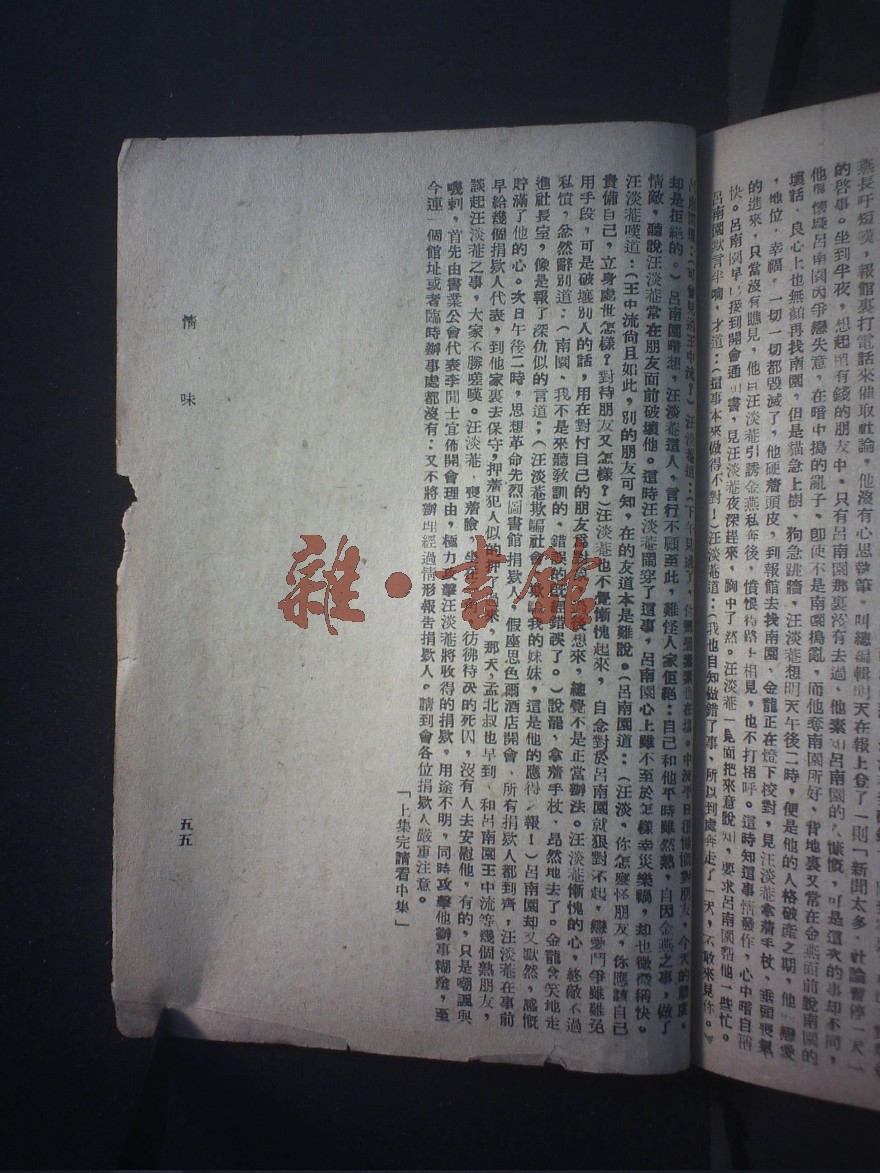 燕長吁短嘆，報館裏打電話來催取社論，他沒有心思執筆，叫總編輯明天在報上登了一則「新聞太多，社論暫停一天」
的啓事。坐到半夜，想起所有錢的朋友中，只有呂南園那裏沒有去過，他素知呂南園的慷慨，可是這次的事却不同，
他懷疑呂南園因爭戀失意，在暗中搗的亂子，卽使不是南園搗亂，而他奪南園所好，背地裏又常在金燕面前說南園的
壞話，良心上也無顏再找南園，但是貓急上樹，狗急跳牆，汪淡菴想明天午後二時，便是他的人格破產之期，他 戀愛
，地位，幸福，一切一切都毀滅了，他硬着頭皮，到報館去找南園，金龍正在燈下校對，見汪淡菴拿着手杖，垂頭喪氣
的進來，只當沒有瞧見，他自汪淡菴引誘金燕私奔後，憤恨得路上相見，也不打招呼。這時知道事情發作，心中暗自稱
快。呂南園早已接到開會通知書，見汪淡菴夜深趕來，胸中了然。汪淡菴一見面把來意說知，要求呂南園幫他一些忙。
呂南園默言半晌，才道：（這事本來做得不對！）汪淡菴道：（我也自知做錯了事，所以到處奔走了一天，不敢來見你。）
却是拒絕的。）呂南園暗想，汪淡菴這人，言行不顧至此，難怪人家拒絕：自己和他平時雖然熱，自因金燕之事，做了
情敵，聽說汪淡菴常在朋友面前破壞他。這時汪淡菴閙穿了這事，呂南園心上雖不至於怎樣幸災樂禍，却也微微稱快。
汪淡菴嘆道：（王中流尙且如此，別的朋友可知，在的友道本是難說。（呂南園道：（汪淡，你怎麼怀朋友，你應該自己
責備自己，立身處世怎樣？對待朋友又怎樣？）汪淡菴也不覺慚愧起來，自念對於呂南園就狠對不起，戀愛鬥爭雖難免
用手段，可是破壞別人的話，用在對付自己的朋友 過後想來，總覺不是正當辦法。汪淡菴慚愧的心，終敵不過
私憤，忿然辭別道：（南園、我不是來聽敎訓的，錯誤的 錯誤了。）說罷，拿着手杖，昂然地去了。金龍含笑地走
進社長室，像是報了深仇似的言道：（汪淡菴欺騙社會 我的妹妹，這是他的應得 報！）呂南園却又默然，感慨
貯滿了他的心。次日午後二時，思想革命先烈圖書館捐欵人，假座思色爾酒店開會，所有捐欵人都到齊，汪淡菴在事前
早給幾個捐欵人代表，到他家裏去保守，押着犯人似的押了 來，那天，孟北叔也早到，和呂南園王中流等幾個熟朋友，
談起汪淡菴之事，大家不勝嗟嘆。汪淡菴 喪着臉，坐在 彷彿待决的死囚，沒有人去安慰他，有的，只是嘲諷與
譏刺，首先由書業公會代表李聞士宣佈開會理由，極力攻擊汪淡菴將收得的捐欵，用途不明，同時攻擊他辦事糊塗，至
今連一個館址或者臨時辦事處都沒有：又不將辦理經過情形報告捐欵人。請到會各位捐欵人嚴重注意。
「上集完請看中集」
情味
五五
雜·書館